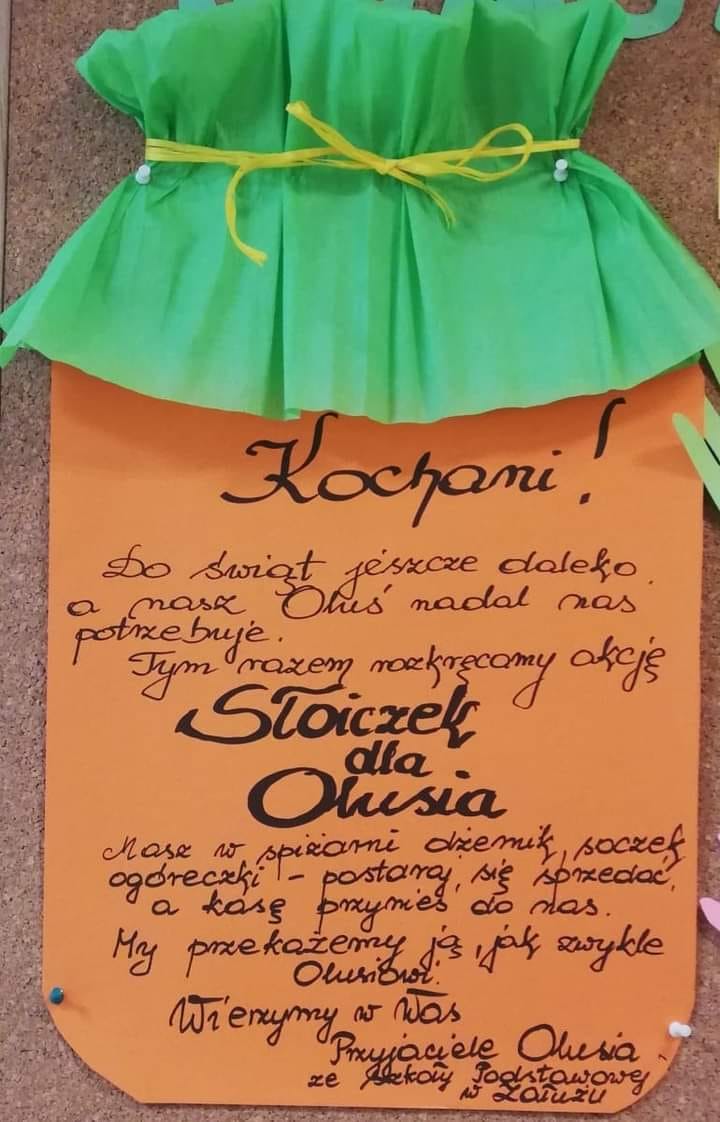 Kochani!
Do świąt jeszcze daleko
a nasz Oluś nadal nas
potrzebuje.
Tym razem rozkręcamy akcję
Słoiczek
dla
Olusia
Masz w spiżarni dżemik, soczek,
ogóreczki - postaraj się sprzedać,
a kasę przynieś do nas.
My przekażemy ją, jak zwykle
Olusiowi.
Wierzymy w Was
Przyjaciele Olusia
ze Szkoły Podstawowej
w Załużu